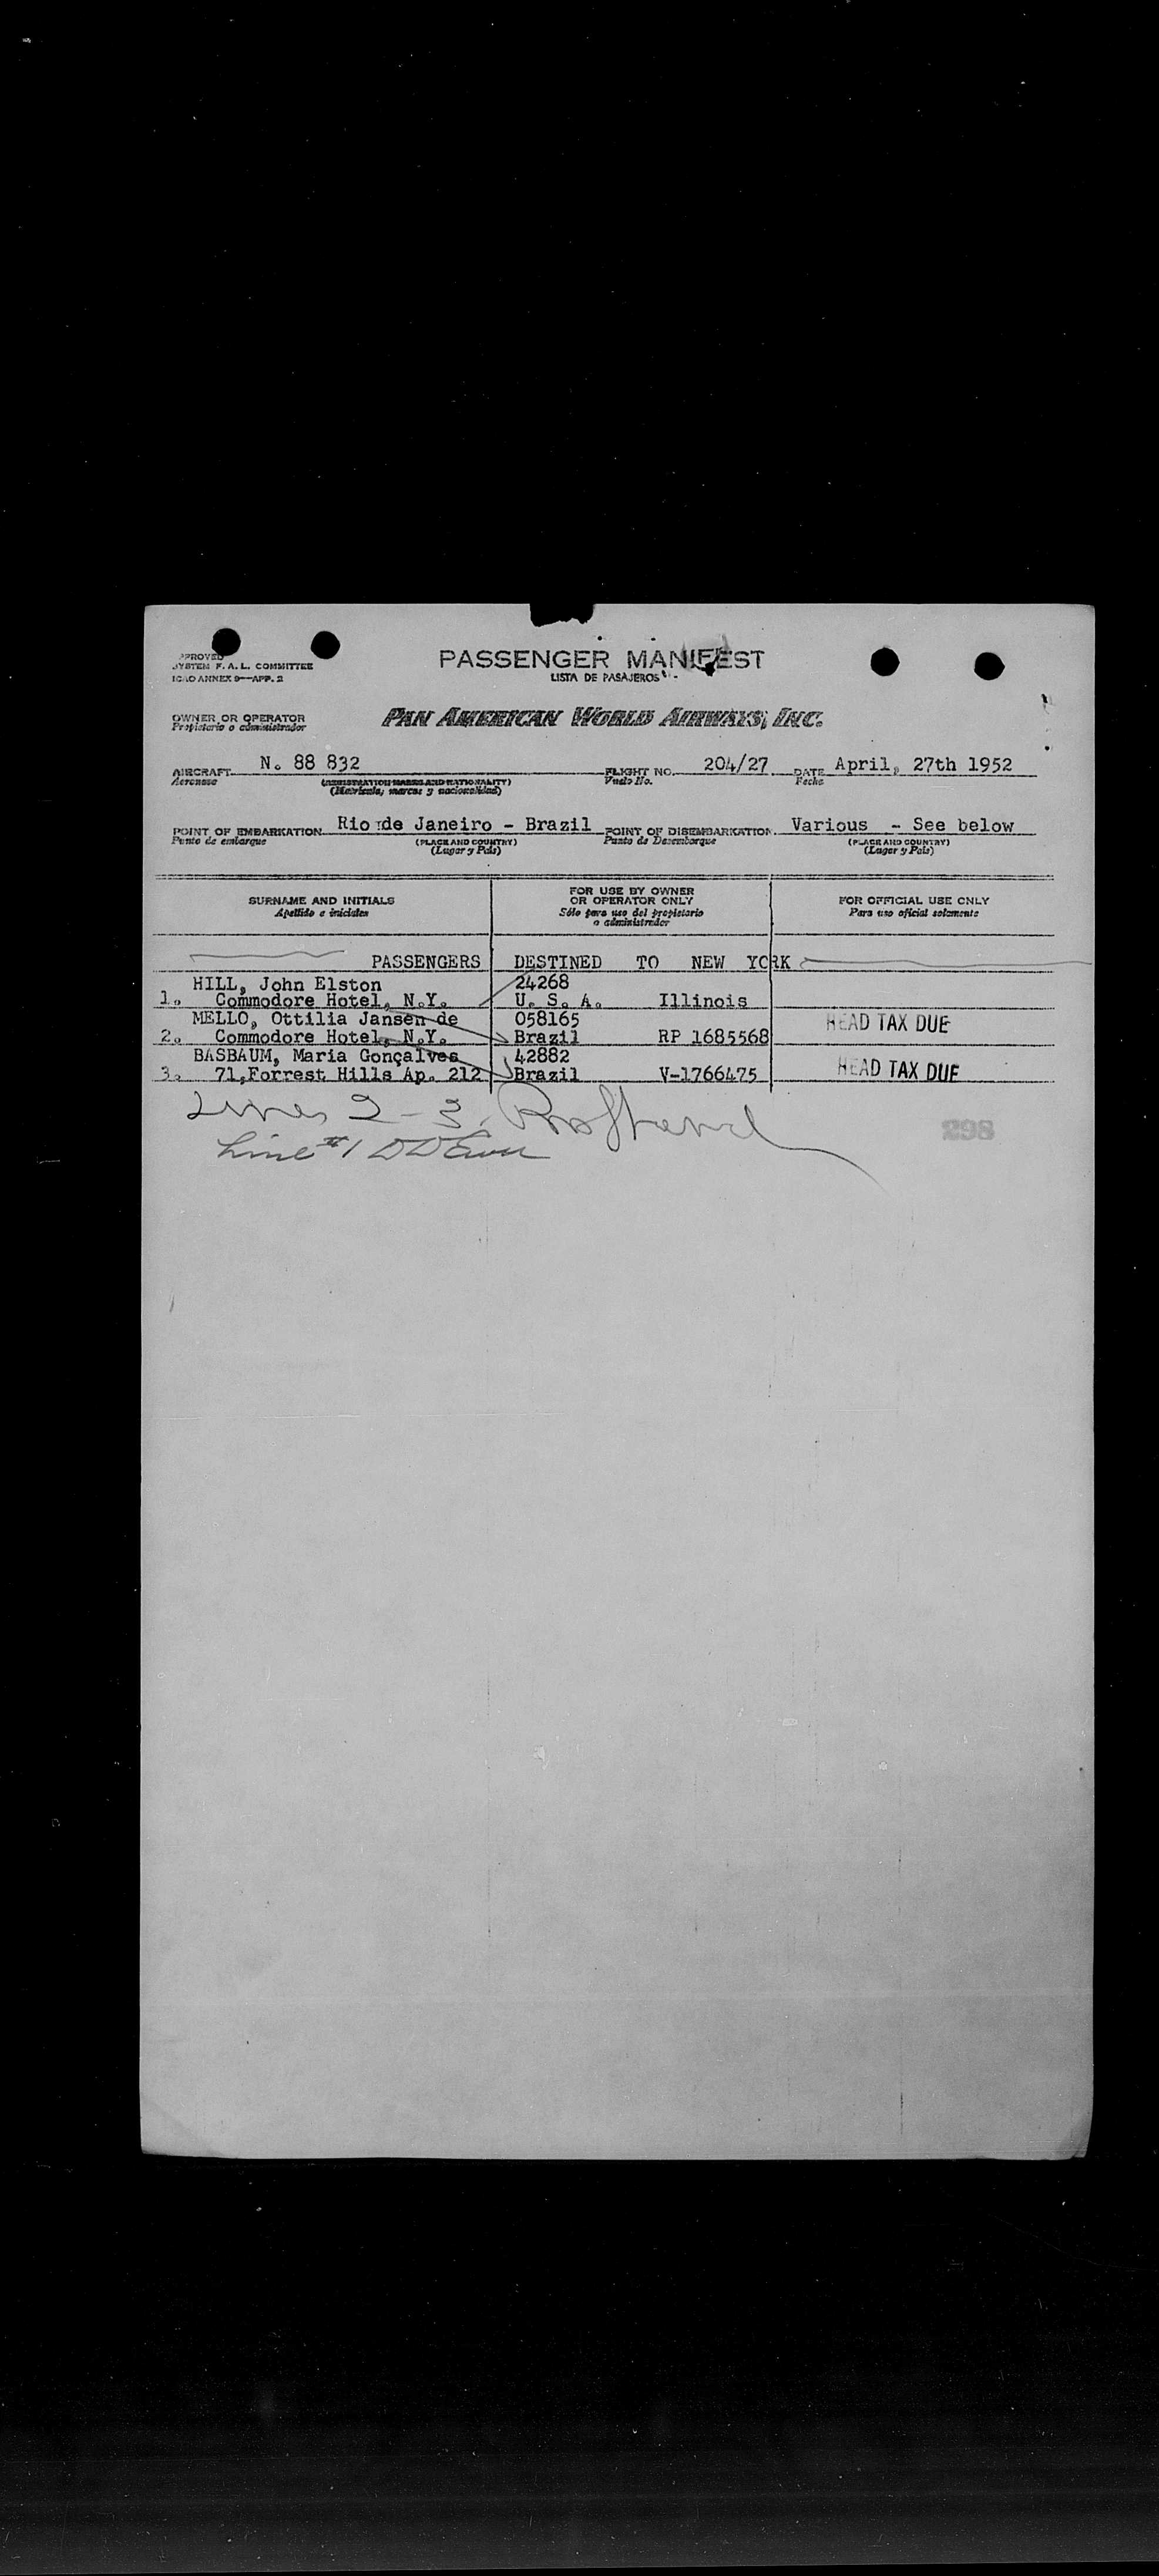 PPROVED
SYSTEM F. A. L. COMMITTEE
ICAO ANNEX 9—APP. 2
PASSENGER MANIFEST
LISTA DE PASAJEROS
OWNER OR OPERATOR
Propietario o administrador
PAN AMERICAN WORLD AIRWAYS, INC.
AIRCRAFT N. 88 832 FLIGHT NO. 204/27 DATE April, 27th 1952
Aeronave (REGISTRATION MARKS AND NATIONALITY) Vuelo No. Fecha
(Matrícula, marcas y nacionalidad)
POINT OF EMBARKATION Rio de Janeiro - Brazil POINT OF DISEMBARKATION Various - See below
Punto de embarque (PLACE AND COUNTRY) Punto de Desembarque (PLACE AND COUNTRY)
(Lugar y País) (Lugar y País)
SURNAME AND INITIALS
Apellido e iniciales
FOR USE BY OWNER
OR OPERATOR ONLY
Sólo para uso del propietario
o administrador
FOR OFFICIAL USE ONLY
Para uso oficial solamente
PASSENGERS DESTINED TO NEW YORK
HILL, John Elston 24268
1. Commodore Hotel, N.Y. U. S. A. Illinois
MELLO, Ottilia Jansen de 058165 HEAD TAX DUE
2. Commodore Hotel, N.Y. Brazil RP 1685568
BASBAUM, Maria Gonçalves 42882 HEAD TAX DUE
3. 71,Forrest Hills Ap. 212 Brazil V-1766475
Lines 2 - 3,
Line #1
298